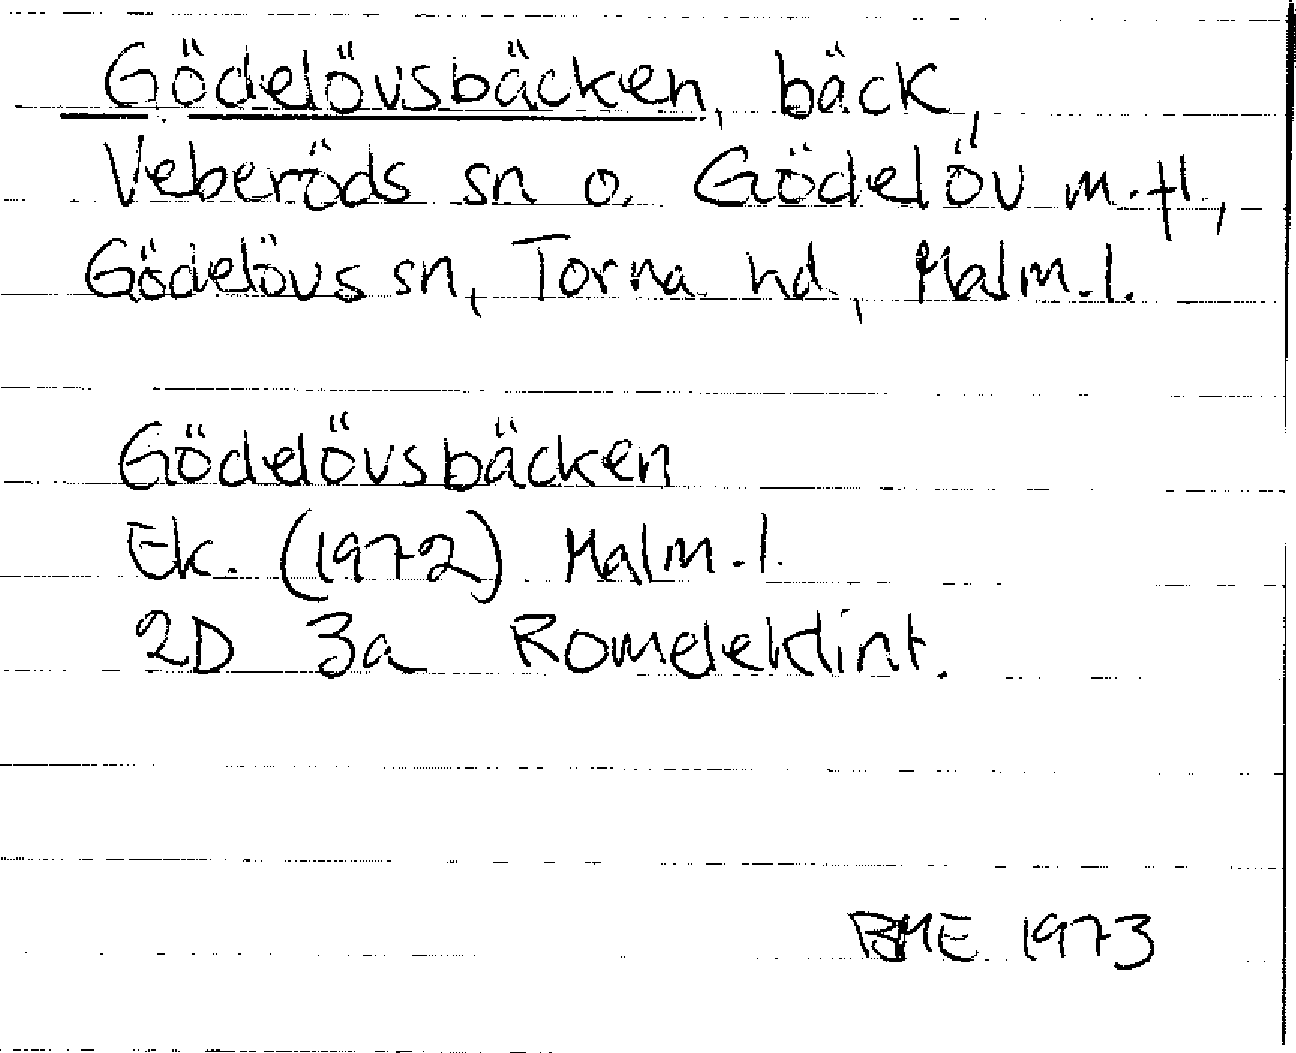 Gödelövsbäcken, bäck,
Veberöds sn o. Gödelöv m.fl.,
Gödelövs sn, Torna hd, Malm.l.
Gödelövsbäcken
Ek. (1972) Malm.l.
2D 3a Romeleklint.
BME 1973